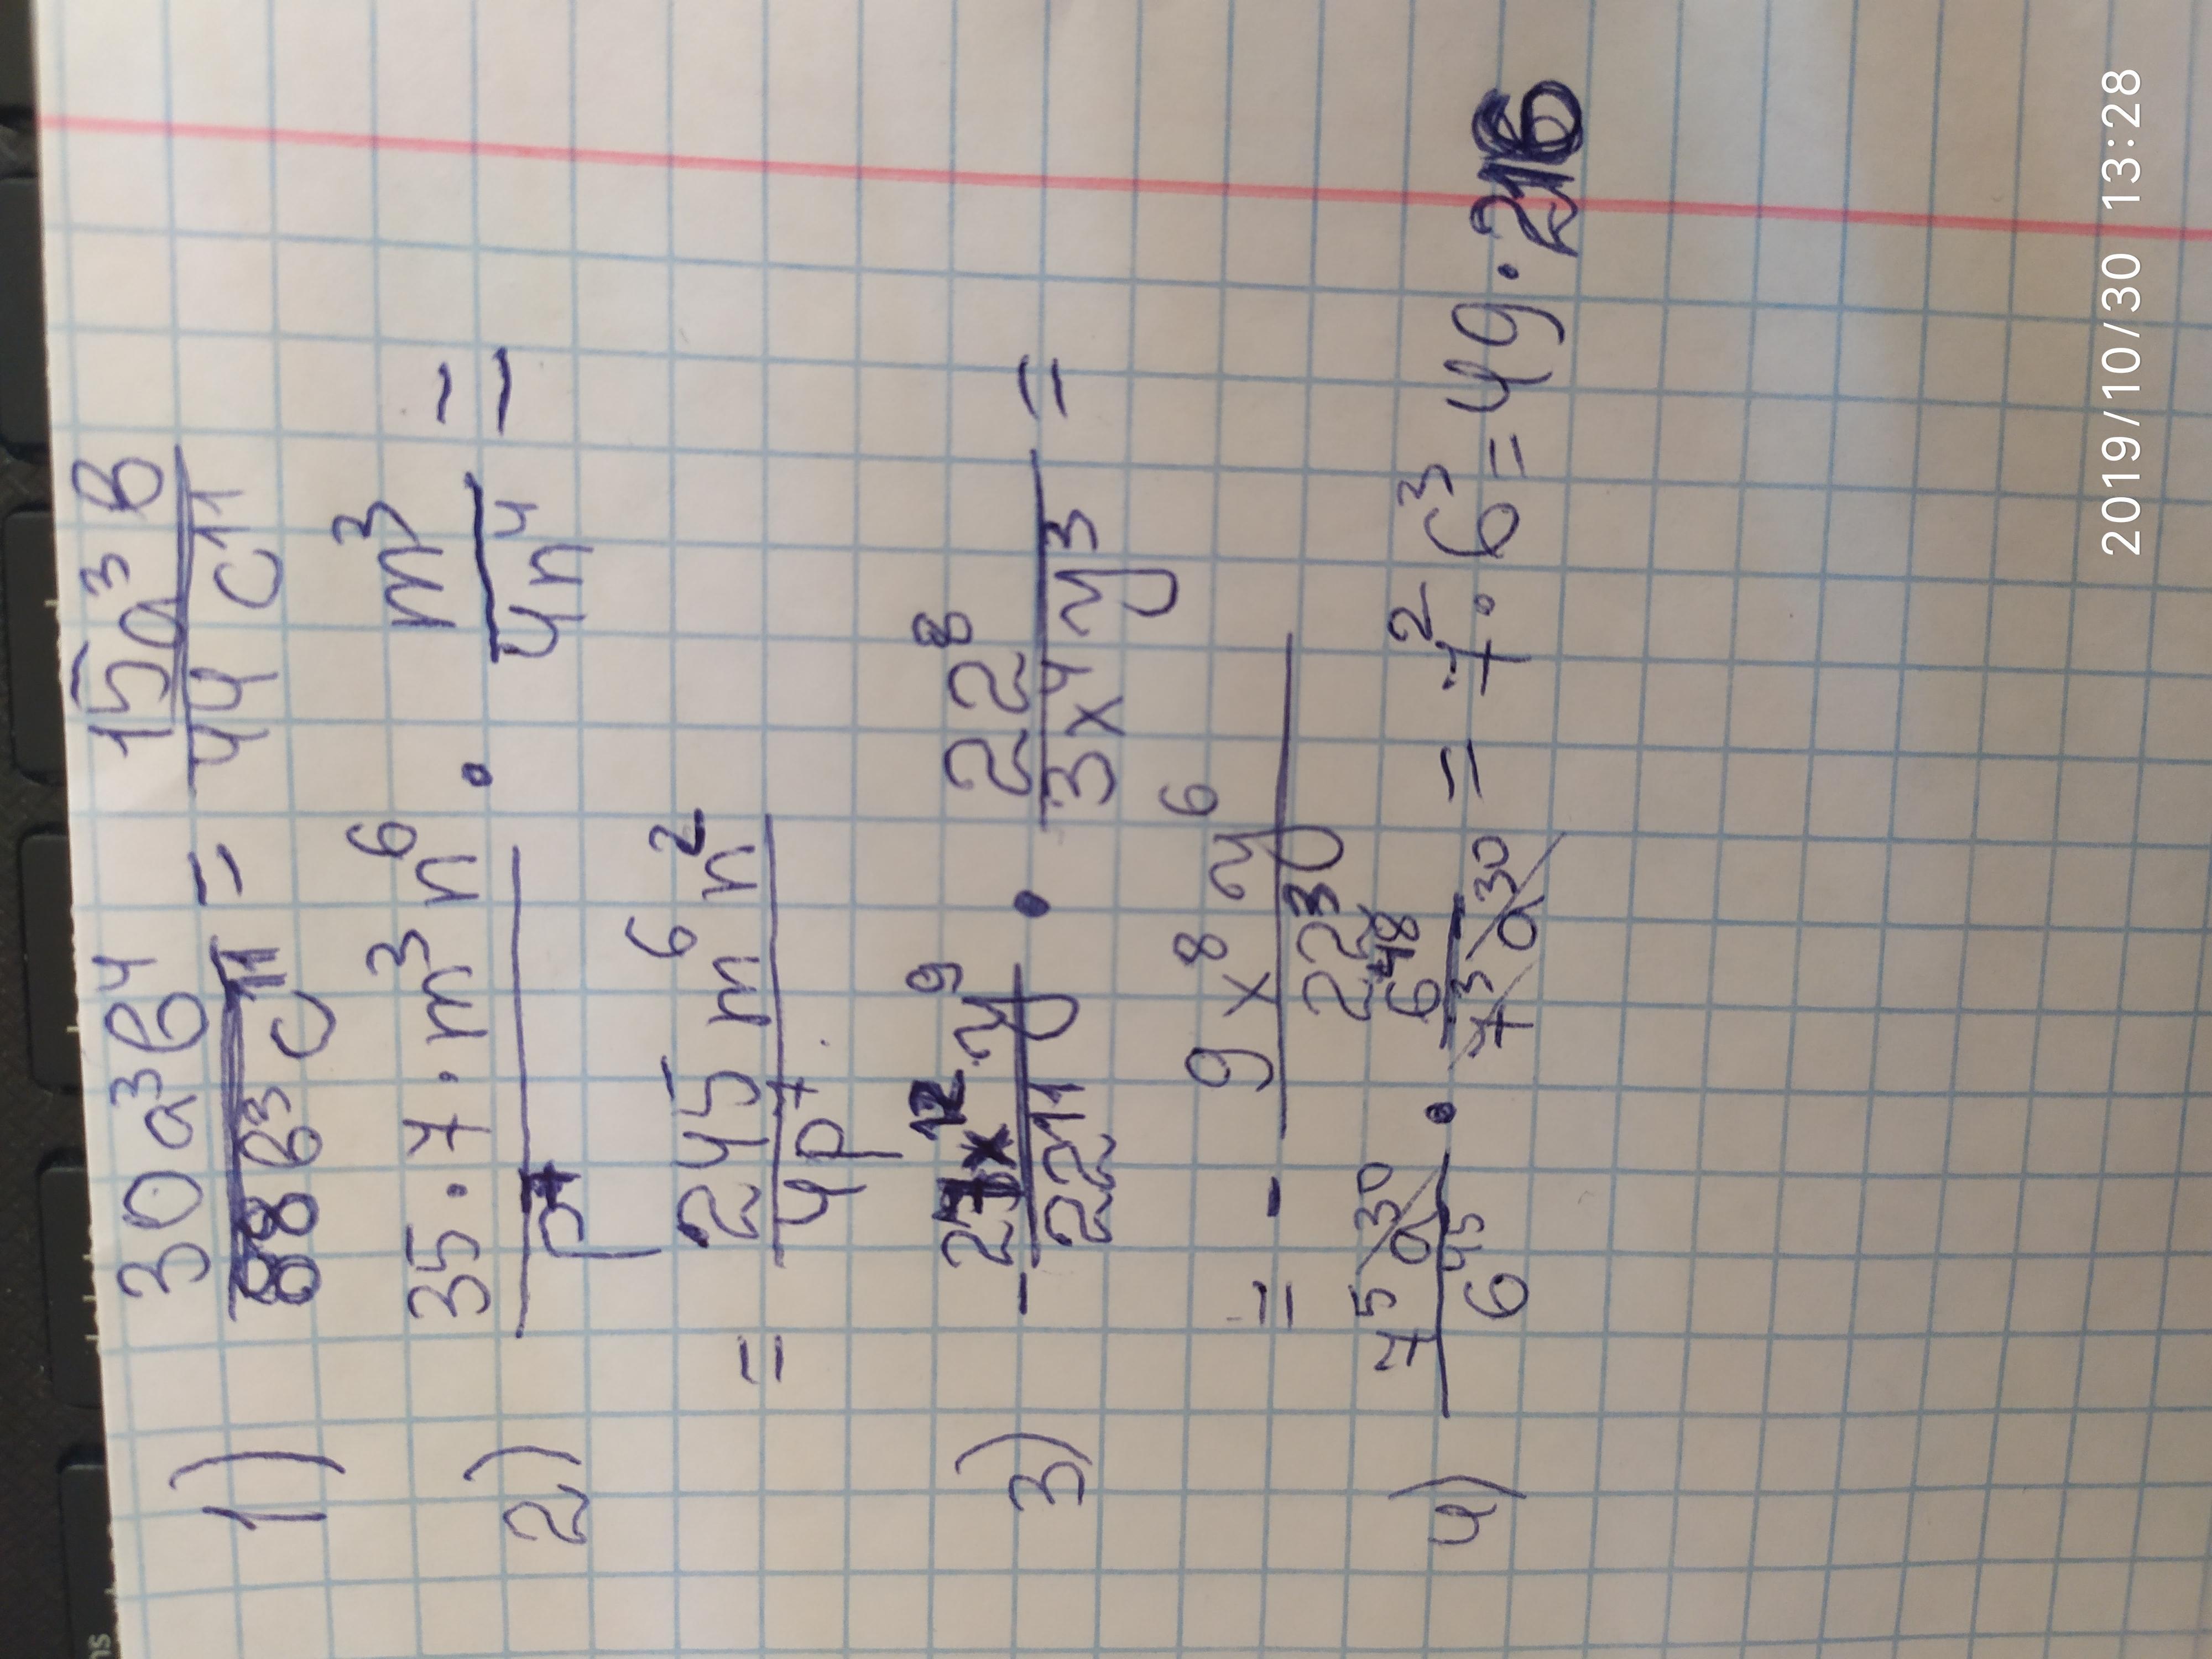 1) 30a³b⁴ / 88b³c¹¹ = 15a³b / 44c¹¹
2) 35·7·m³n⁶ / p⁷ · m³ / 4n⁴ =
= 245m⁶n² / 4p⁷
3) - 27x¹²y⁹ / 22¹¹ · 22⁸ / 3x⁴y³ =
= - 9x⁸y⁶ / 22³
4) 7⁵a³⁰ / 6⁴⁵ · 6⁴⁸ / 7³a³⁰ = 7²·6³ = 49·216
2019/10/30 13:28